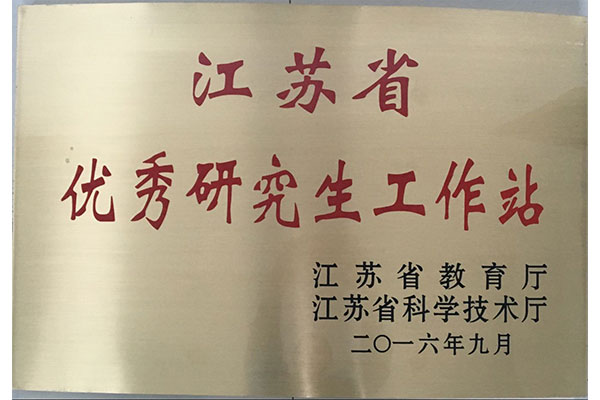 江苏省
优秀研究生工作站
江苏省教育厅
江苏省科学技术厅
二〇一六年九月